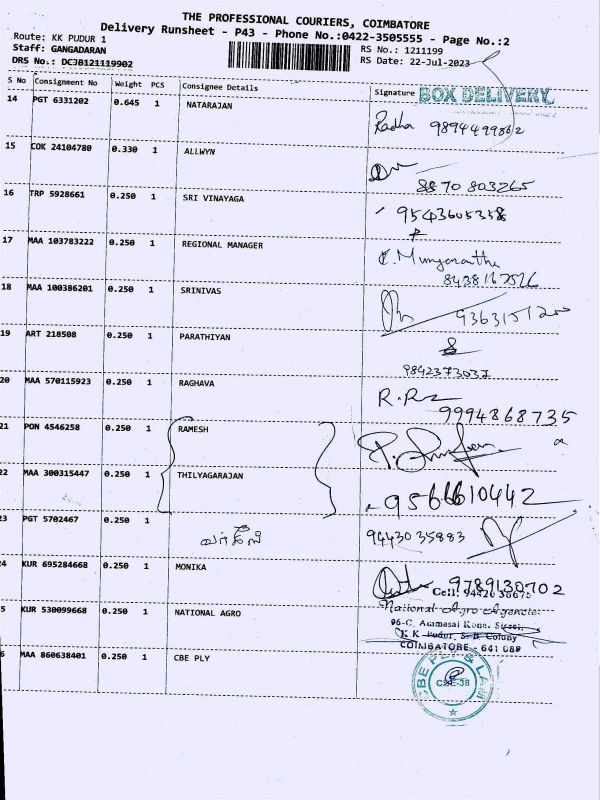 THE PROFESSIONAL COURIERS, COIMBATORE
Delivery Runsheet - P43 - Phone No.:0422-3505555 - Page No.:2
Route: KK PUDUR 1
Staff: GANGADARAN
DRS No.: DCJB121119902
RS No.: 1211199
RS Date: 22-Jul-2023
S No Consignment No Weight PCS Consignee Details Signature BOX DELIVERY
14 PGT 6331202 0.645 1 NATARAJAN
Radha 9894499862
15 COK 24104780 0.330 1 ALLWYN
8870803265
16 TRP 5928661 0.250 1 SRI VINAYAGA
9543605358
17 MAA 103783222 0.250 1 REGIONAL MANAGER
8438167516
18 MAA 100386201 0.250 1 SRINIVAS
19 ART 218508 0.250 1 PARATHIYAN
9842373037
20 MAA 570115923 0.250 1 RAGHAVA
9994868735
21 PON 4546258 0.250 1 RAMESH
22 MAA 300315447 0.250 1 THILYAGARAJAN
9566610442
23 PGT 5702467 0.250 1
9443035883
24 KUR 695284668 0.250 1 MONIKA
9789130702
Cell:
5 KUR 530099668 0.250 1 NATIONAL AGRO
National Agro Agencies
96-C,
K K Pudur, S. B. Colony
COIMBATORE - 641 038
6 MAA 860638401 0.250 1 CBE PLY
CBE PLY & LAM
CBE-38